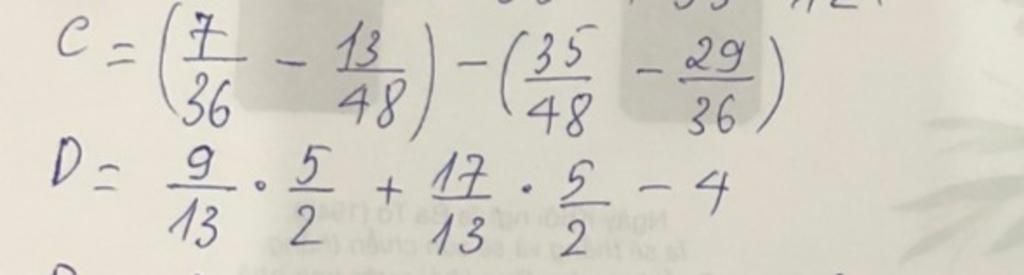 C = (7/36 - 13/48) - (35/48 - 29/36)
D = 9/13 . 5/2 + 17/13 . 5/2 - 4